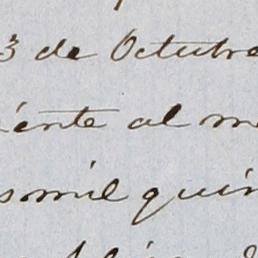 3 de Octubre
iente al m
somil quin